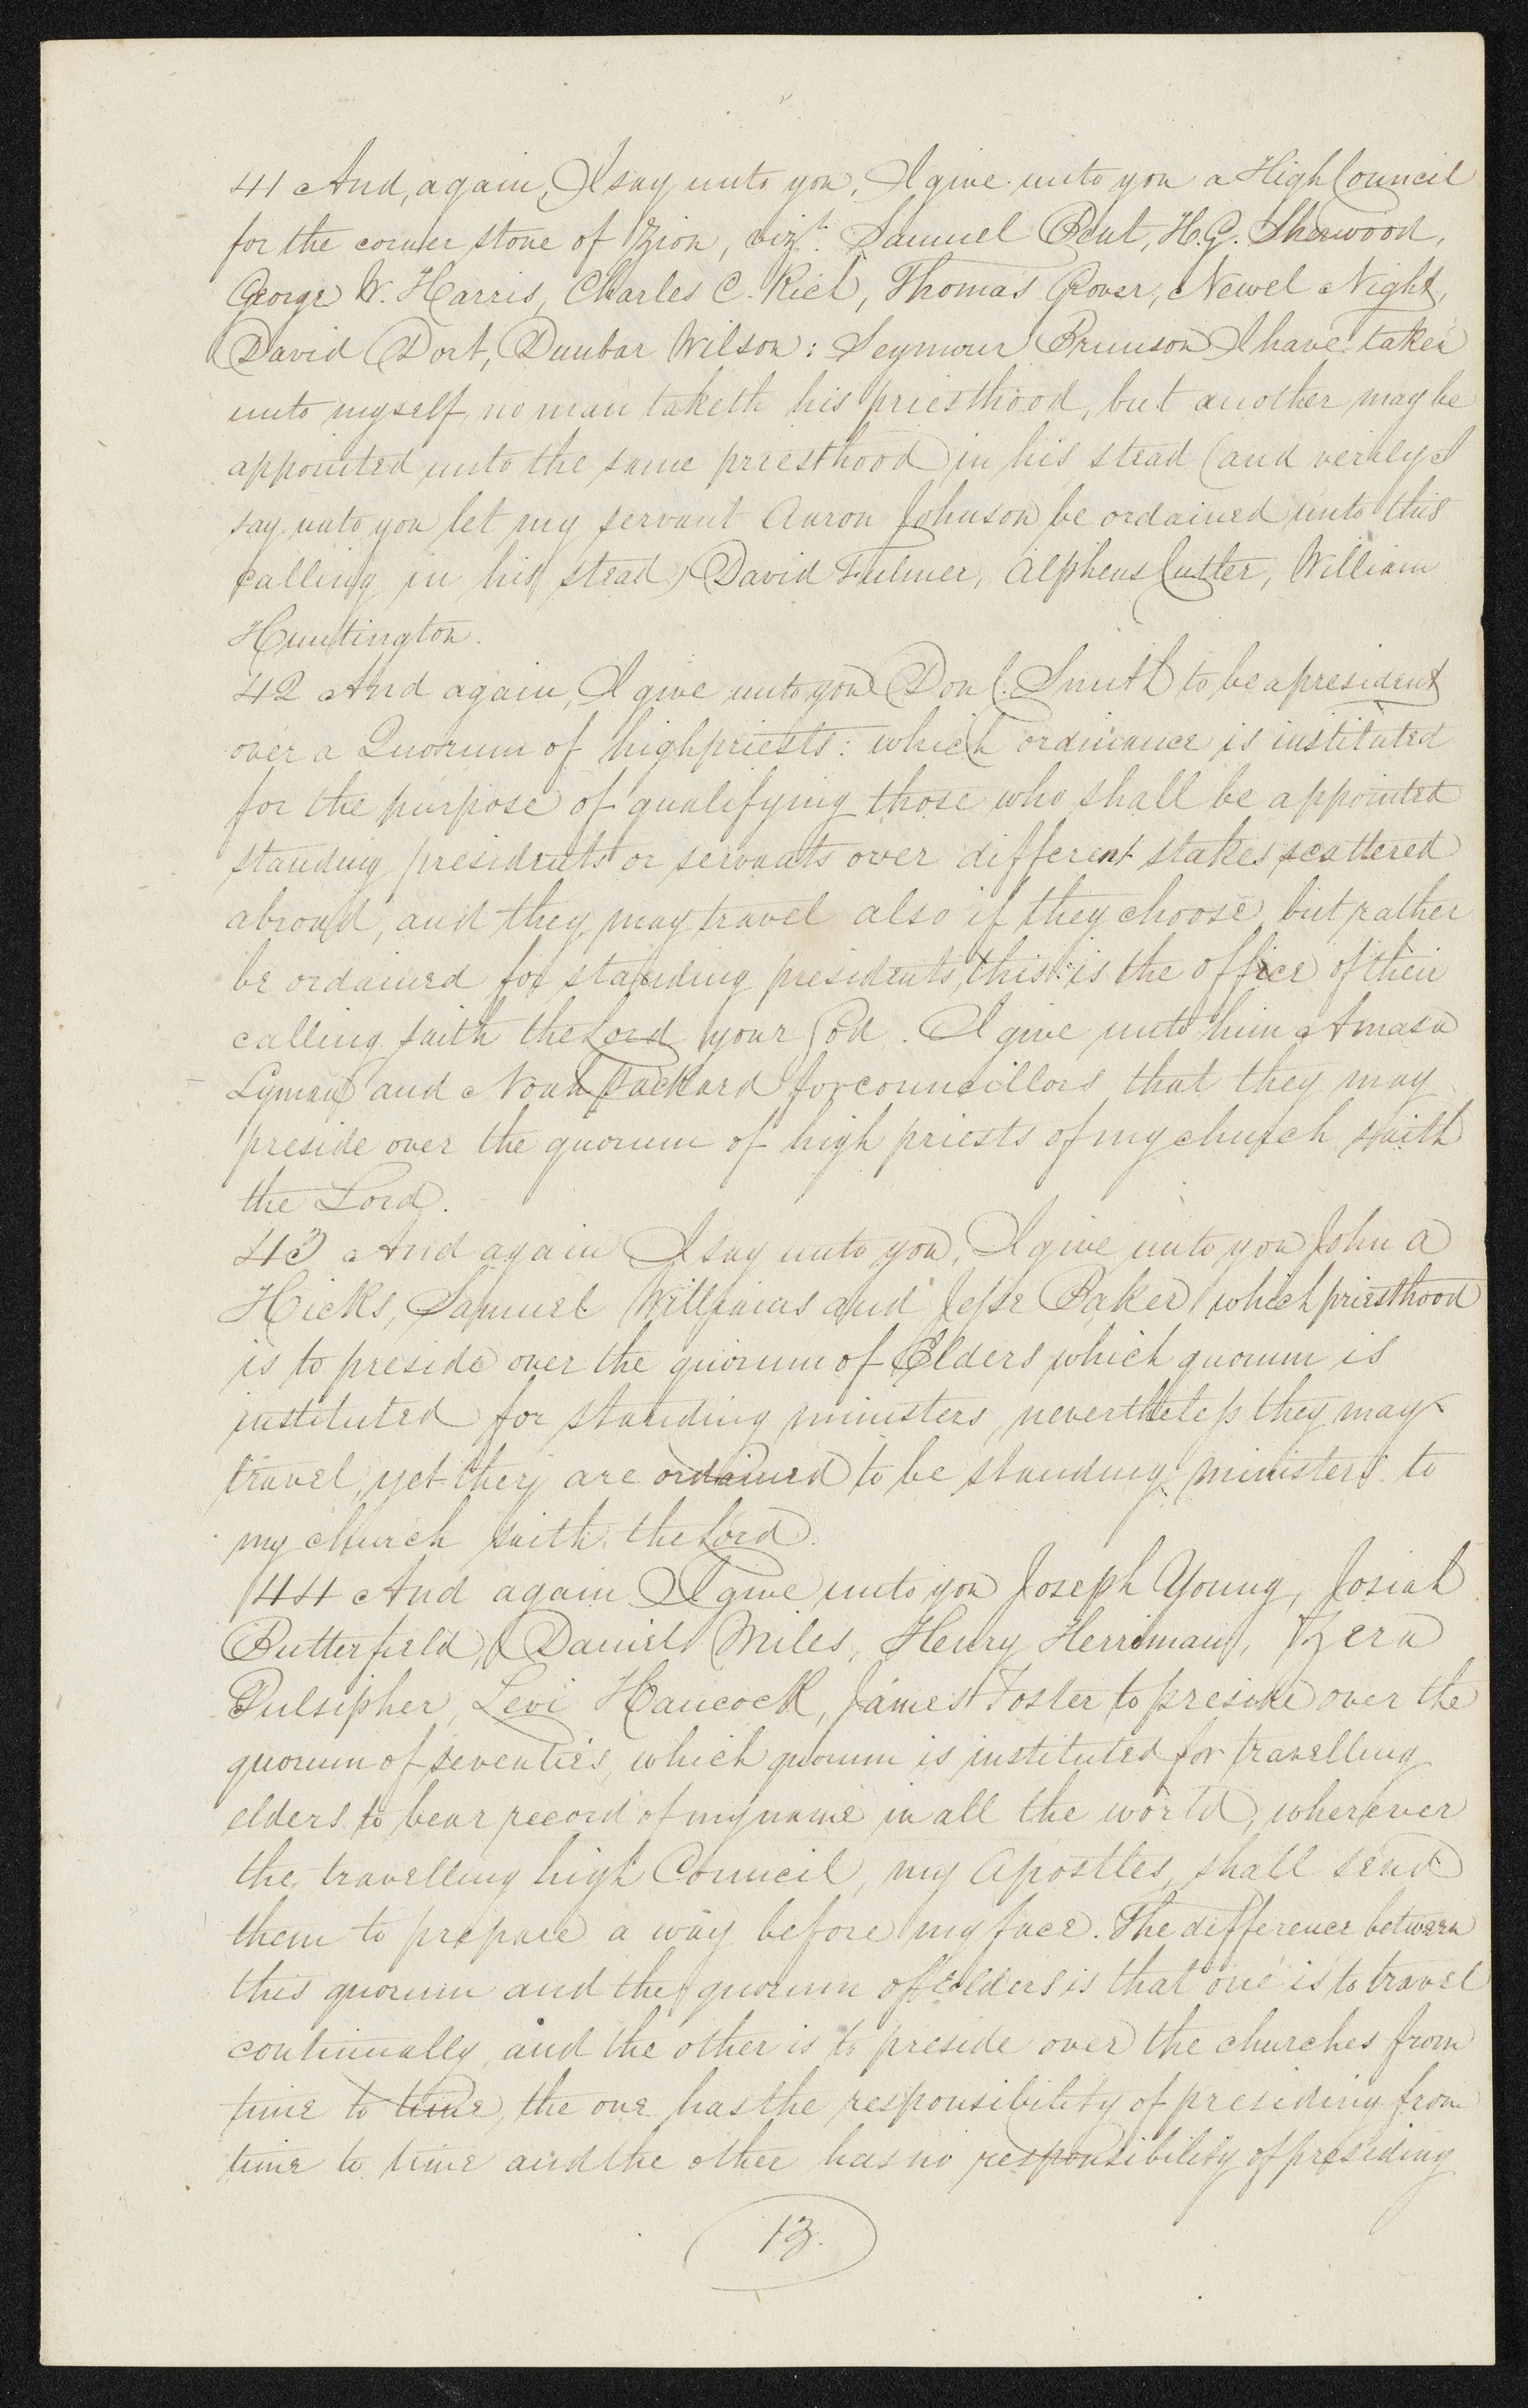 41 And, again, I say unto you, I give unto you a High Council
for the corner stone of Zion, vizt. Samuel Bent, H. G. Sherwood,
George W. Harris, Charles C. Rich, Thomas Grover, Newel Night,
David Dort, Dunbar Wilson: Seymour Brunson I have taken
unto myself, no man taketh his priesthood, but another may be
appointed unto the same priesthood in his stead (and verily I
say unto you let my servant Aaron Johnson be ordained unto this
calling in his stead) David Fulmer, Alpheus Cutter, William
Huntington.
42 And again, I give unto you Don C. Smith to be a president
over a Quorum of highpriests: which ordinance is instituted
for the purpose of qualifying those who shall be appointed
standing presidents or servants over different stakes scattered
abroad, and they may travel also if they choose, but rather
be ordained for standing presidents, this is the office of their
calling saith the Lord your God. I give unto him Amasa
Lyman and Noah Packard for councillors that they may
preside over the quorum of high priests of my church saith
the Lord.
43 And again I say unto you, I give unto you John A
Hicks, Samuel Williams and Jesse Baker, which priesthood
is to preside over the quorum of Elders which quorum is
instituted for standing ministers, nevertheless they may
travel, yet they are ordained to be standing ministers to
my church saith the Lord.
44 And again I give unto you Joseph Young, Josiah
Butterfield, Daniel Miles, Henry Herriman, Zera
Pulsipher, Levi Hancock, James Foster to preside over the
quorum of seventies, which quorum is instituted for travelling
elders to bear record of my name in all the world, wherever
the travelling high Council, my Apostles, shall send
them to prepare a way before my face. The difference between
this quorum and the quorum of Elders is that one is to travel
continually, and the other is to preside over the churches from
time to time, the one has the responsibility of presiding from
time to time and the other has no responsibility of presiding
13.